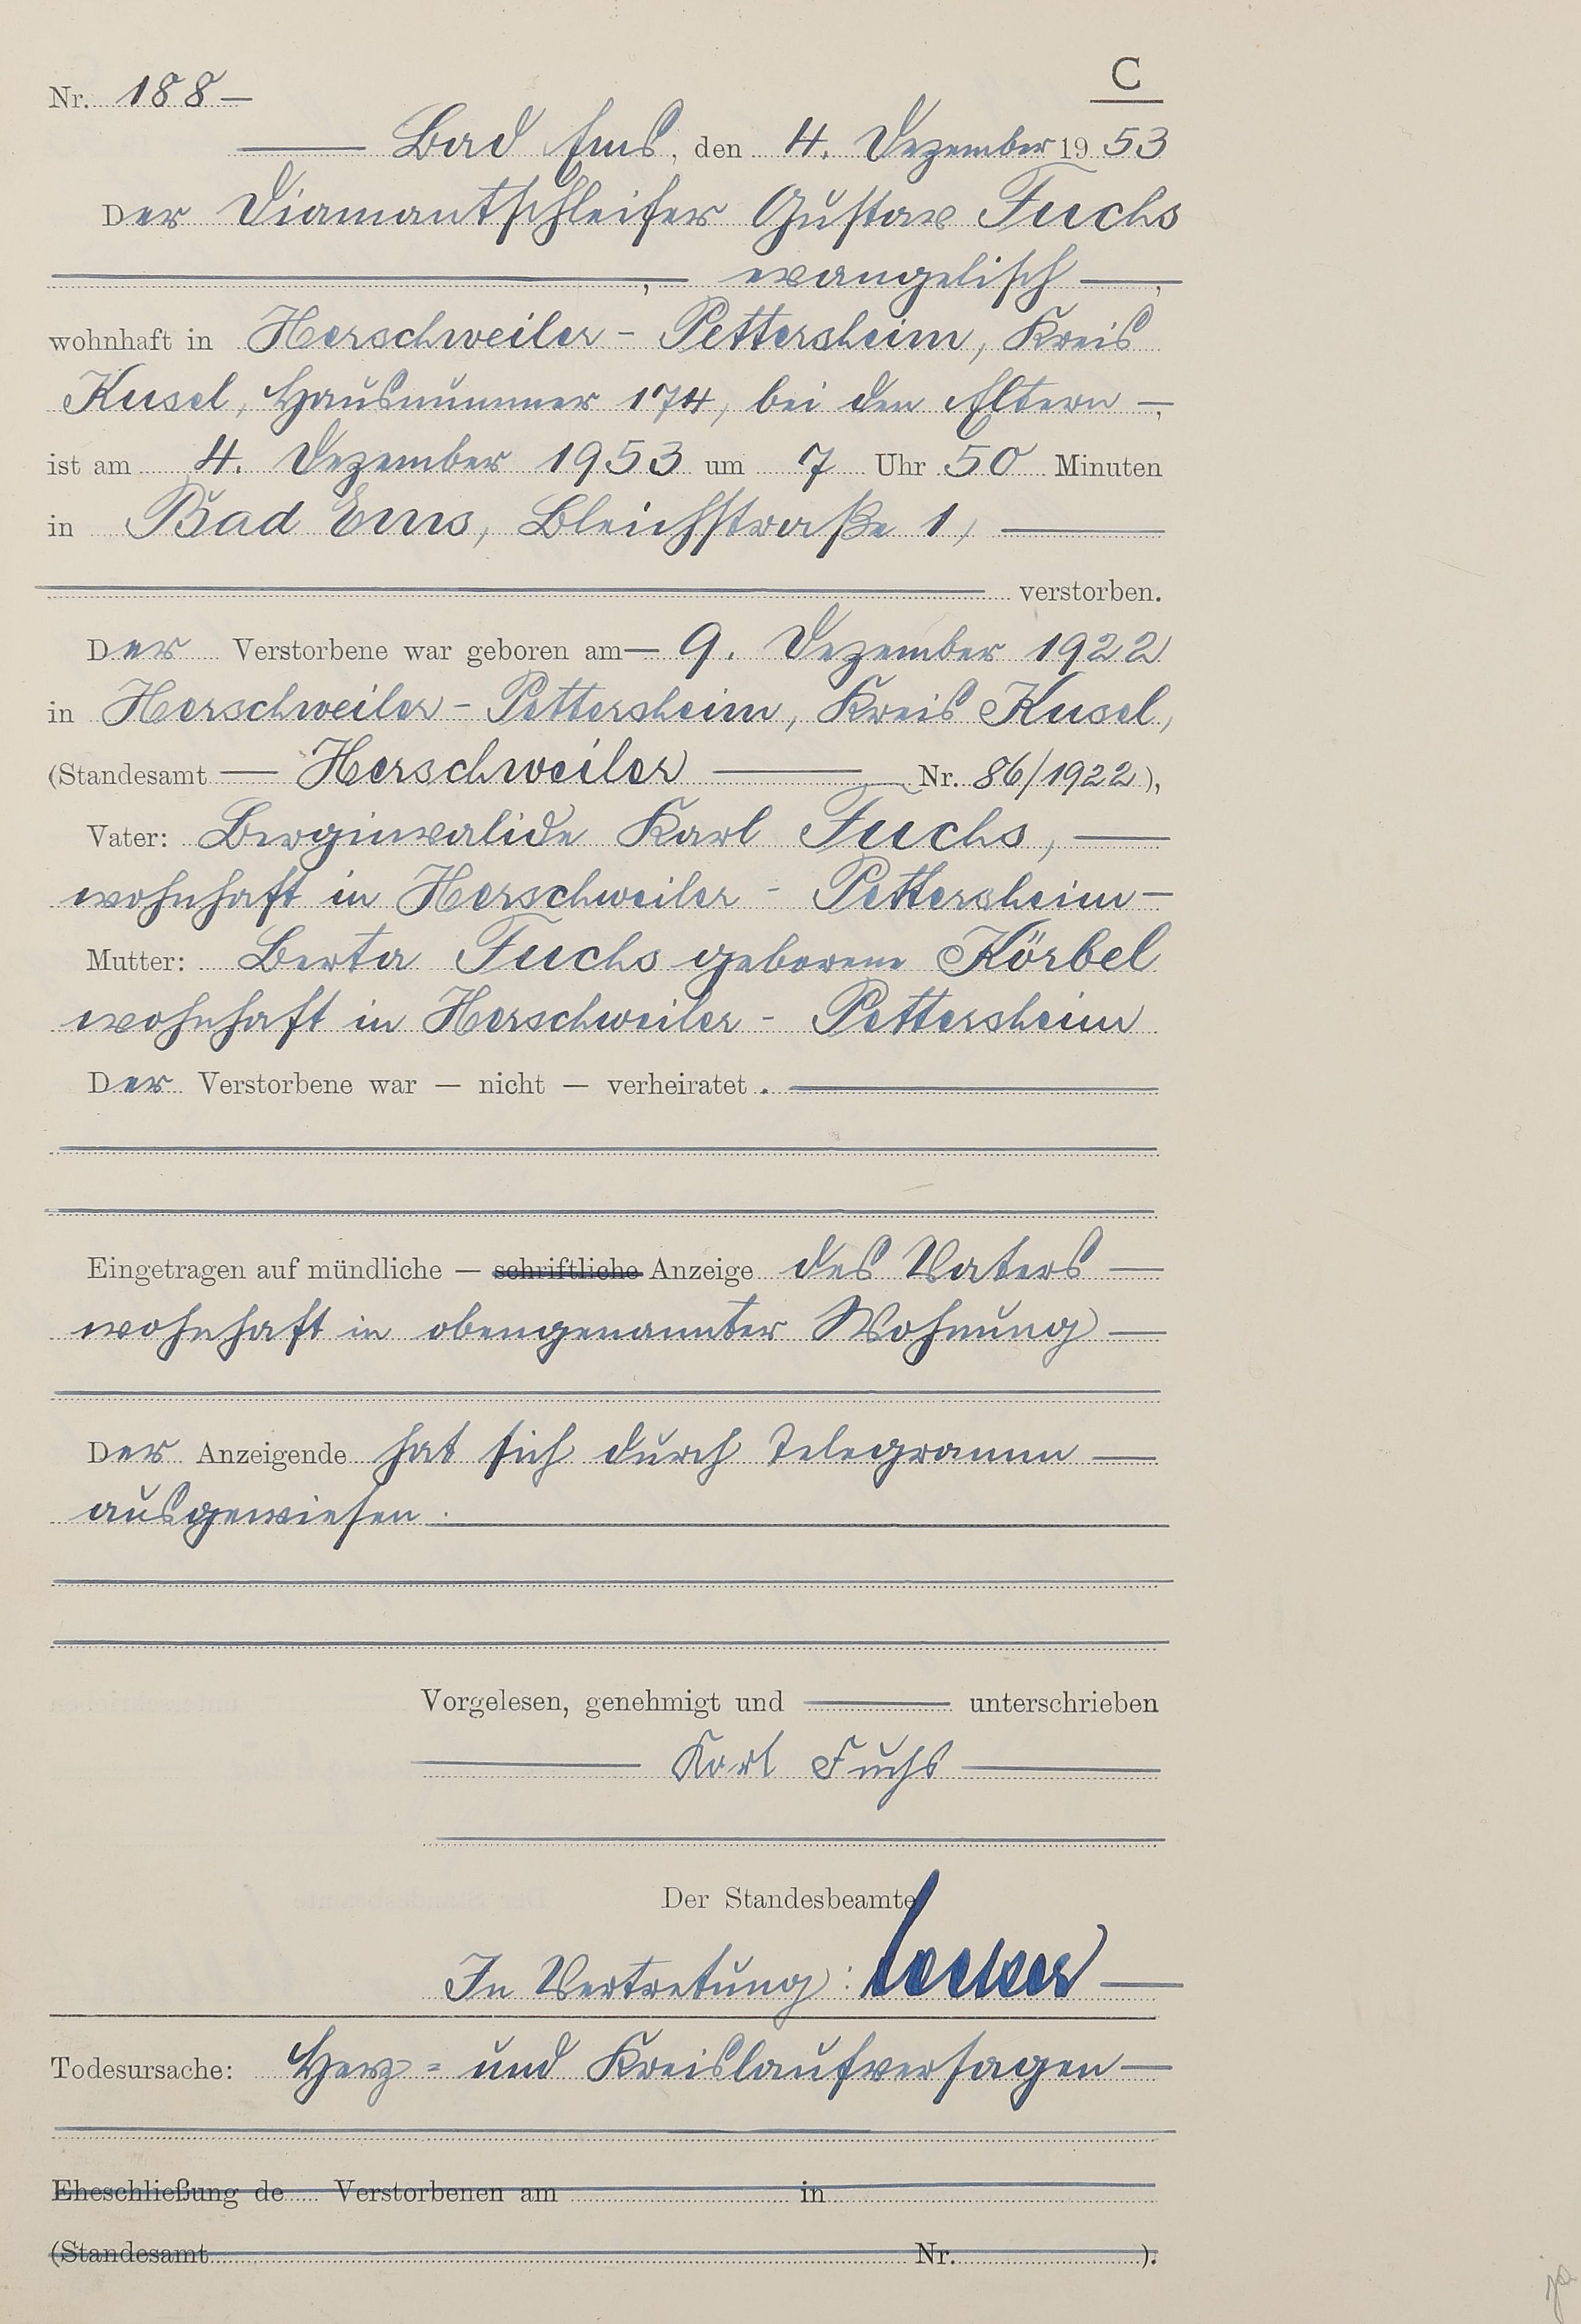 C
Nr. 188 —
— Bad Ems, den 4. Dezember 1953
Der Diamantschleifer Gustav Fuchs
—, — evangelisch —,
wohnhaft in Herschweiler - Pettersheim, Kreis
Kusel, Hausnummer 174, bei den Eltern —,
ist am 4. Dezember 1953 um 7 Uhr 50 Minuten
in Bad Ems, Bleichstraße 1, —
— verstorben.
Der Verstorbene war geboren am — 9. Dezember 1922
in Herschweiler - Pettersheim, Kreis Kusel,
(Standesamt — Herschweiler — Nr. 86/1922),
Vater: Berginvalide Karl Fuchs, —
wohnhaft in Herschweiler - Pettersheim —
Mutter: Berta Fuchs geborene Körbel
wohnhaft in Herschweiler - Pettersheim
Der Verstorbene war — nicht — verheiratet. —
Eingetragen auf mündliche — schriftliche Anzeige des Vaters —
wohnhaft in obengenannter Wohnung —
Der Anzeigende hat sich durch Telegramm —
ausgewiesen. —
Vorgelesen, genehmigt und — unterschrieben
— Karl Fuchs —
Der Standesbeamte
In Vertretung: —
Todesursache: Herz- und Kreislaufversagen —
Eheschließung de Verstorbenen am in
(Standesamt Nr. ).